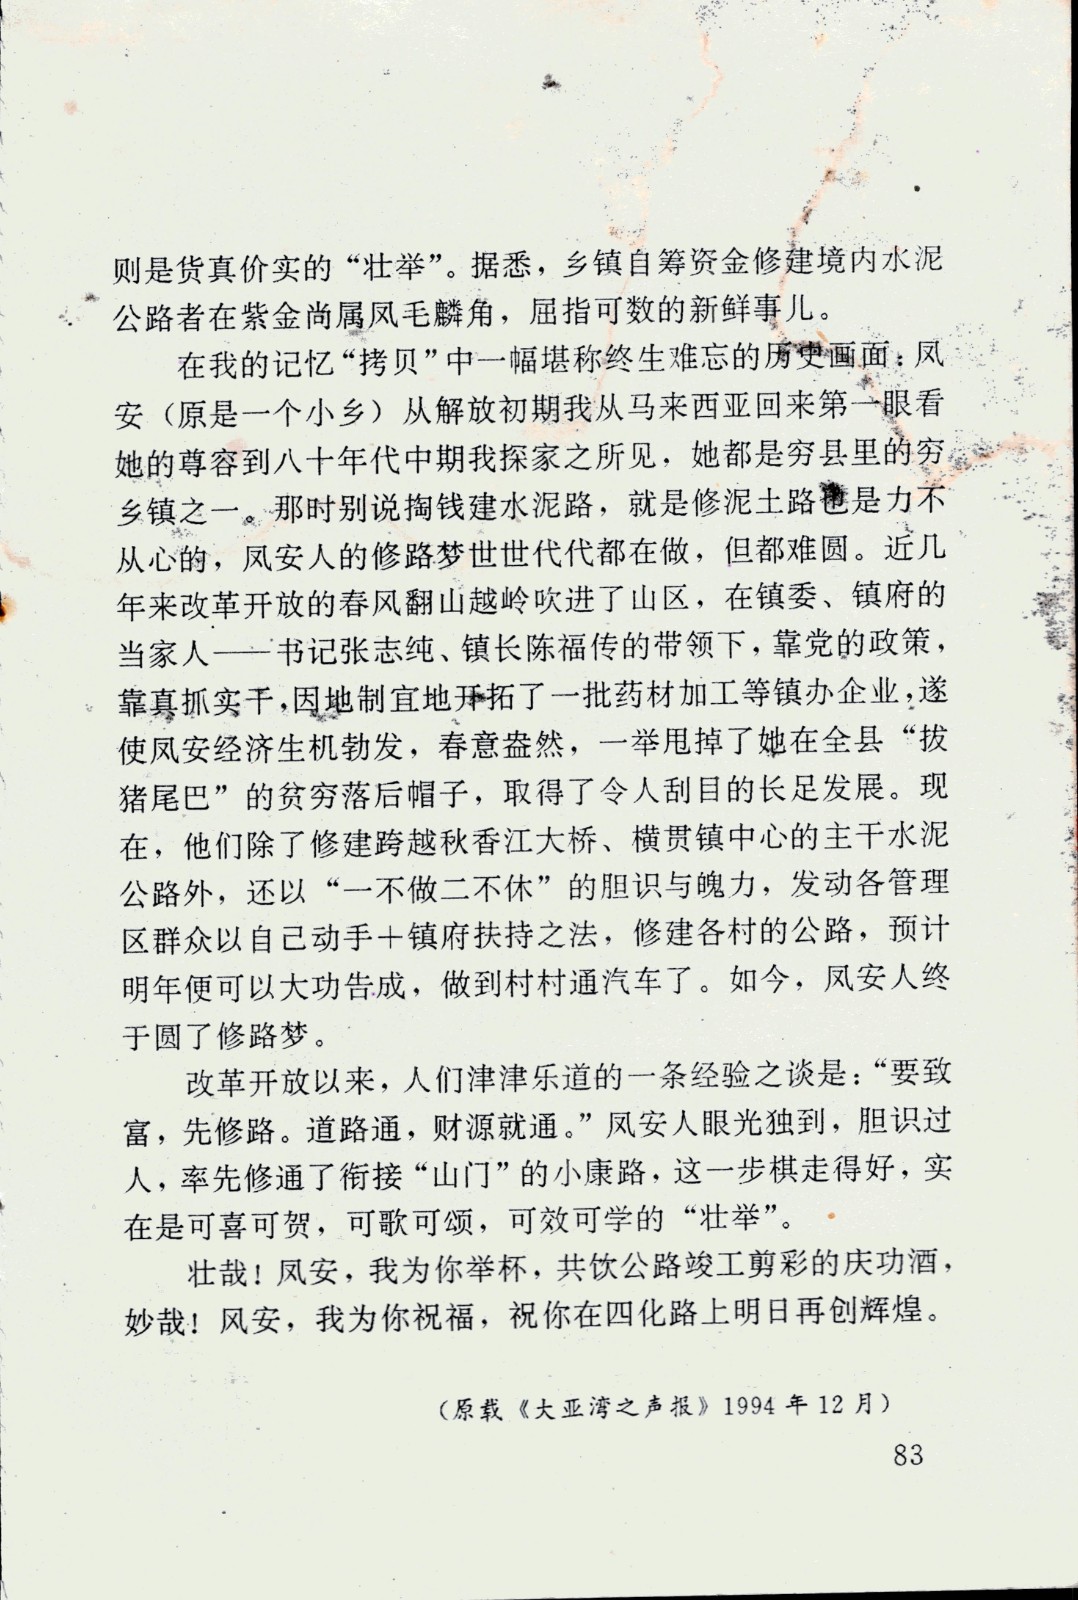 则是货真价实的“壮举”。据悉，乡镇自筹资金修建境内水泥
公路者在紫金尚属凤毛麟角，屈指可数的新鲜事儿。
在我的记忆“拷贝”中一幅堪称终生难忘的历史画面：凤
安（原是一个小乡）从解放初期我从马来西亚回来第一眼看
她的尊容到八十年代中期我探家之所见，她都是穷县里的穷
乡镇之一。那时别说掏钱建水泥路，就是修泥土路也是力不
从心的，凤安人的修路梦世世代代都在做，但都难圆。近几
年来改革开放的春风翻山越岭吹进了山区，在镇委、镇府的
当家人——书记张志纯、镇长陈福传的带领下，靠党的政策，
靠真抓实干，因地制宜地开拓了一批药材加工等镇办企业，遂
使凤安经济生机勃发，春意盎然，一举甩掉了她在全县“拔
猪尾巴”的贫穷落后帽子，取得了令人刮目的长足发展。现
在，他们除了修建跨越秋香江大桥、横贯镇中心的主干水泥
公路外，还以“一不做二不休”的胆识与魄力，发动各管理
区群众以自己动手＋镇府扶持之法，修建各村的公路，预计
明年便可以大功告成，做到村村通汽车了。如今，凤安人终
于圆了修路梦。
改革开放以来，人们津津乐道的一条经验之谈是：“要致
富，先修路。道路通，财源就通。”凤安人眼光独到，胆识过
人，率先修通了衔接“山门”的小康路，这一步棋走得好，实
在是可喜可贺，可歌可颂，可效可学的“壮举”。
壮哉！凤安，我为你举杯，共饮公路竣工剪彩的庆功酒，
妙哉！风安，我为你祝福，祝你在四化路上明日再创辉煌。
（原载《大亚湾之声报》1994年12月）
83